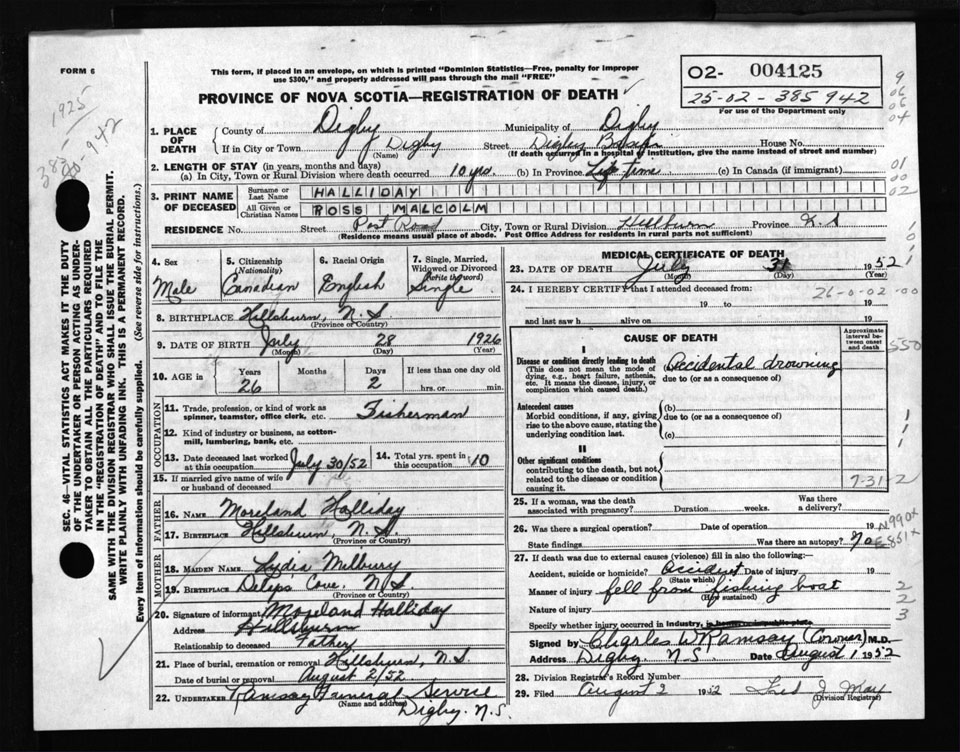 FORM 6
This form, if placed in an envelope, on which is printed "Dominion Statistics—Free, penalty for improper
use $300," and properly addressed will pass through the mail "FREE"
PROVINCE OF NOVA SCOTIA—REGISTRATION OF DEATH
O2- 004125
25-02-385942
For use of the Department only
1925
942
SEC. 46—VITAL STATISTICS ACT MAKES IT THE DUTY
OF THE UNDERTAKER OR PERSON ACTING AS UNDER-
TAKER TO OBTAIN ALL THE PARTICULARS REQUIRED
IN THE "REGISTRATION OF DEATH" AND TO FILE THE
SAME WITH THE DIVISION REGISTRAR WHO SHALL ISSUE THE BURIAL PERMIT.
WRITE PLAINLY WITH UNFADING INK. THIS IS A PERMANENT RECORD.
Every item of information should be carefully supplied. (See reverse side for instructions.)
1. PLACE OF DEATH
County of Digby Municipality of Digby
If in City or Town Digby (Name) Street Digby Basin House No.
(If death occurred in a hospital or institution, give the name instead of street and number)
2. LENGTH OF STAY (in years, months and days)
(a) In City, Town or Rural Division where death occurred 10 yrs. (b) In Province Life time (c) In Canada (if immigrant)
3. PRINT NAME OF DECEASED
Surname or Last Name HALLIDAY
All Given or Christian Names ROSS MALCOLM
RESIDENCE No. Street Post Road City, Town or Rural Division Hillburn Province N.S
(Residence means usual place of abode. Post Office Address for residents in rural parts not sufficient)
4. Sex Male
5. Citizenship (Nationality) Canadian
6. Racial Origin English
7. Single, Married, Widowed or Divorced (write the word) Single
8. BIRTHPLACE Hillsburn, N.S. (Province or Country)
9. DATE OF BIRTH July (Month) 28 (Day) 1926 (Year)
10. AGE in Years 26 Months Days 2 If less than one day old hrs. or min.
OCCUPATION
11. Trade, profession, or kind of work as spinner, teamster, office clerk, etc. Fisherman
12. Kind of industry or business, as cotton-mill, lumbering, bank, etc.
13. Date deceased last worked at this occupation July 30/52
14. Total yrs. spent in this occupation 10
15. If married give name of wife or husband of deceased
FATHER
16. NAME Moreland Halliday
17. BIRTHPLACE Hillsburn, N.S. (Province or Country)
MOTHER
18. MAIDEN NAME Lydia Milbury
19. BIRTHPLACE Delaps Cove, N.S (Province or Country)
20. Signature of informant Moreland Halliday
Address Hillsburn
Relationship to deceased Father
21. Place of burial, cremation or removal Hillsburn, N.S.
Date of burial or removal August 2/52
22. UNDERTAKER Ramsay Funeral Service
(Name and address) Digby. N.S.
MEDICAL CERTIFICATE OF DEATH
23. DATE OF DEATH July (Month) 31 (Day) 1952 (Year)
24. I HEREBY CERTIFY that I attended deceased from:
19 to 19
and last saw h alive on 19
CAUSE OF DEATH
Approximate interval between onset and death
I
Disease or condition directly leading to death
(This does not mean the mode of dying, e.g., heart failure, asthenia, etc. It means the disease, injury, or complication which caused death.)
Accidental drowning
due to (or as a consequence of)
Antecedent causes
Morbid conditions, if any, giving rise to the above cause, stating the underlying condition last.
(b)
due to (or as a consequence of)
(c)
II
Other significant conditions
contributing to the death, but not related to the disease or condition causing it.
7-31-2
25. If a woman, was the death associated with pregnancy? Duration weeks. Was there a delivery?
26. Was there a surgical operation? Date of operation 19
State findings Was there an autopsy? No
N990X
E851X
27. If death was due to external causes (violence) fill in also the following:
Accident, suicide or homicide? Accident (State which) Date of injury 19
Manner of injury fell from fishing boat (How sustained)
Nature of injury
Specify whether injury occurred in Industry, in home or in public place
Signed by Charles W Ramsay (Coroner) M.D.
Address Digby. N.S. Date August 1 1952
28. Division Registrar's Record Number
29. Filed August 2 1952 Fred J. May
(Division Registrar)
9
06
06
04
01
00
02
550
2
2
3